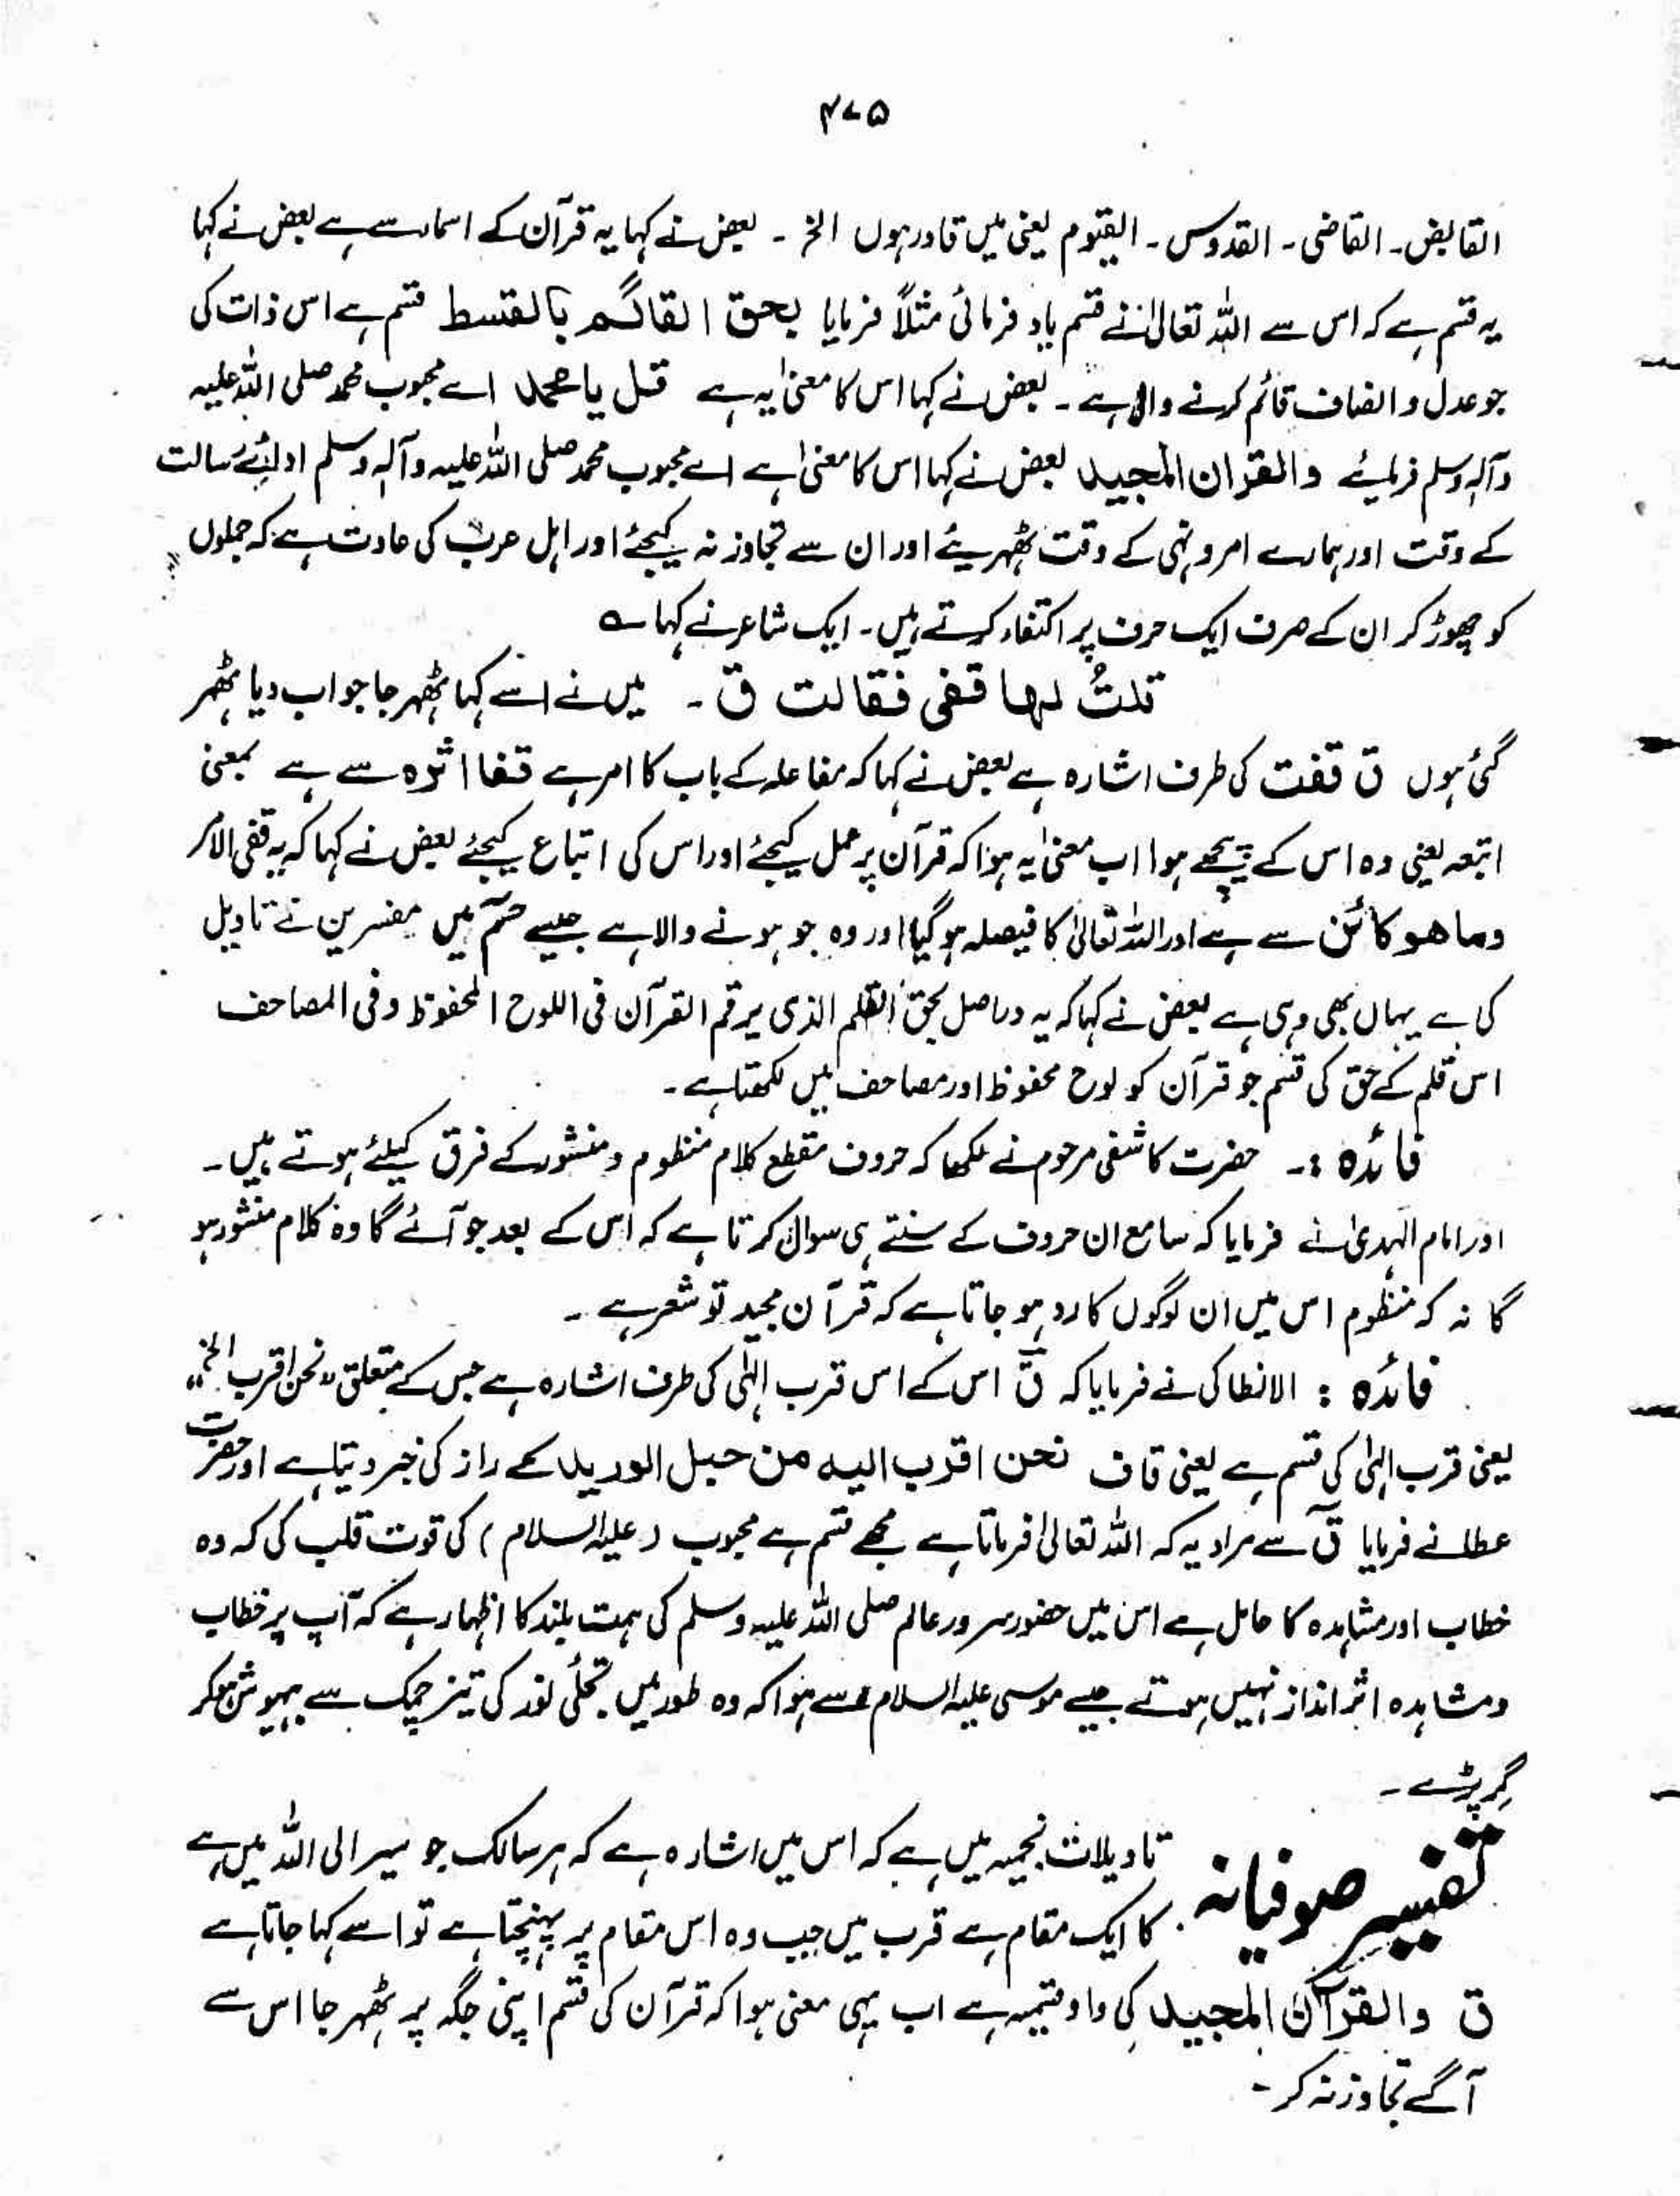 ۴۷۵
القابض۔ القاضی۔ القدوس۔ القیوم یعنی میں قادر ہوں الخ۔ بعض نے کہا یہ قرآن کے اسماء سے ہے بعض نے کہا
یہ قسم ہے کہ اس سے اللہ تعالیٰ نے قسم یاد فرمائی مثلاً فرمایا بحق القائم بالقسط قسم ہے اس ذات کی
جو عدل و انصاف قائم کرنے والا ہے۔ بعض نے کہا اس کا معنیٰ یہ ہے قل یا محمد اے محبوب محمد صلی اللہ علیہ
وآلہٖ وسلم فرمایئے والقرآن المجید بعض نے کہا اس کا معنیٰ ہے اے محبوب محمد صلی اللہ علیہ وآلہٖ وسلم ادائے رسالت
کے وقت اور ہمارے امر و نہی کے وقت ٹھہریئے اور ان سے تجاوز نہ کیجئے اور اہل عرب کی عادت ہے کہ جملوں
کو چھوڑ کر ان کے صرف ایک حرف پر اکتفاء کرتے ہیں۔ ایک شاعر نے کہا ؎
قلتُ لہا قفی فقالت ق۔ میں نے اسے کہا ٹھہر جا جواب دیا ٹھہر
گئی ہوں ق قفت کی طرف اشارہ ہے بعض نے کہا کہ مفاعلہ کے باب کا امر ہے قفا اثرہ سے ہے بمعنیٰ
اتبعہ یعنی وہ اس کے پیچھے ہوا اب معنیٰ یہ ہوا کہ قرآن پر عمل کیجئے اور اس کی اتباع کیجئے بعض نے کہا کہ یہ قضی الامر
وما ھو کائن سے ہے اور اللہ تعالیٰ کا فیصلہ ہوگیا اور وہ جو ہونے والا ہے جیسے حٰمٓ میں مفسرین نے تاویل
کی ہے یہاں بھی وہی ہے بعض نے کہا کہ یہ دراصل بحق القلم الذی یرقم القرآن فی اللوح المحفوظ وفی المصاحف
اس قلم کے حق کی قسم جو قرآن کو لوح محفوظ اور مصاحف میں لکھتا ہے۔
فائدہ :۔ حضرت کاشفی مرحوم نے لکھا کہ حروف مقطع کلام منظوم و منشور کے فرق کیلئے ہوتے ہیں۔
اور امام الہدیٰ نے فرمایا کہ سامع ان حروف کے سنتے ہی سوال کرتا ہے کہ اس کے بعد جو آئے گا وہ کلام منشور ہو
گا نہ کہ منظوم اس میں ان لوگوں کا رد ہو جاتا ہے کہ قرآن مجید تو شعر ہے۔
فائدہ : الانطاکی نے فرمایا کہ قٓ اس کے اس قرب الٰہی کی طرف اشارہ ہے جس کے متعلق "نحن اقرب الخ"
یعنی قرب الٰہی کی قسم ہے یعنی قاف نحن اقرب الیہ من حبل الورید کے راز کی خبر دیتا ہے اور حضرت
عطا نے فرمایا قٓ سے مراد یہ کہ اللہ تعالیٰ فرماتا ہے مجھے قسم ہے محبوب (علیہ السلام) کی قوت قلب کی کہ وہ
خطاب اور مشاہدہ کا حامل ہے اس میں حضور سرور عالم صلی اللہ علیہ وسلم کی ہمت بلند کا اظہار ہے کہ آپ پر خطاب
ومشاہدہ اثر انداز نہیں ہوتے جیسے موسیٰ علیہ السلام سے ہوا کہ وہ طور میں تجلّی نور کی تیز چمک سے بیہوش ہوکر
گر پڑے۔
تفسیر صوفیانہ
تاویلات نجمیہ میں ہے کہ اس میں اشارہ ہے کہ ہر سالک جو سیر الی اللہ میں ہے
کا ایک مقام ہے قرب میں جب وہ اس مقام پر پہنچتا ہے تو اسے کہا جاتا ہے
ق والقرآن المجید کی واو قسمیہ ہے اب یہی معنی ہوا کہ قرآن کی قسم اپنی جگہ پر ٹھہر جا اس سے
آگے تجاوز نہ کر۔